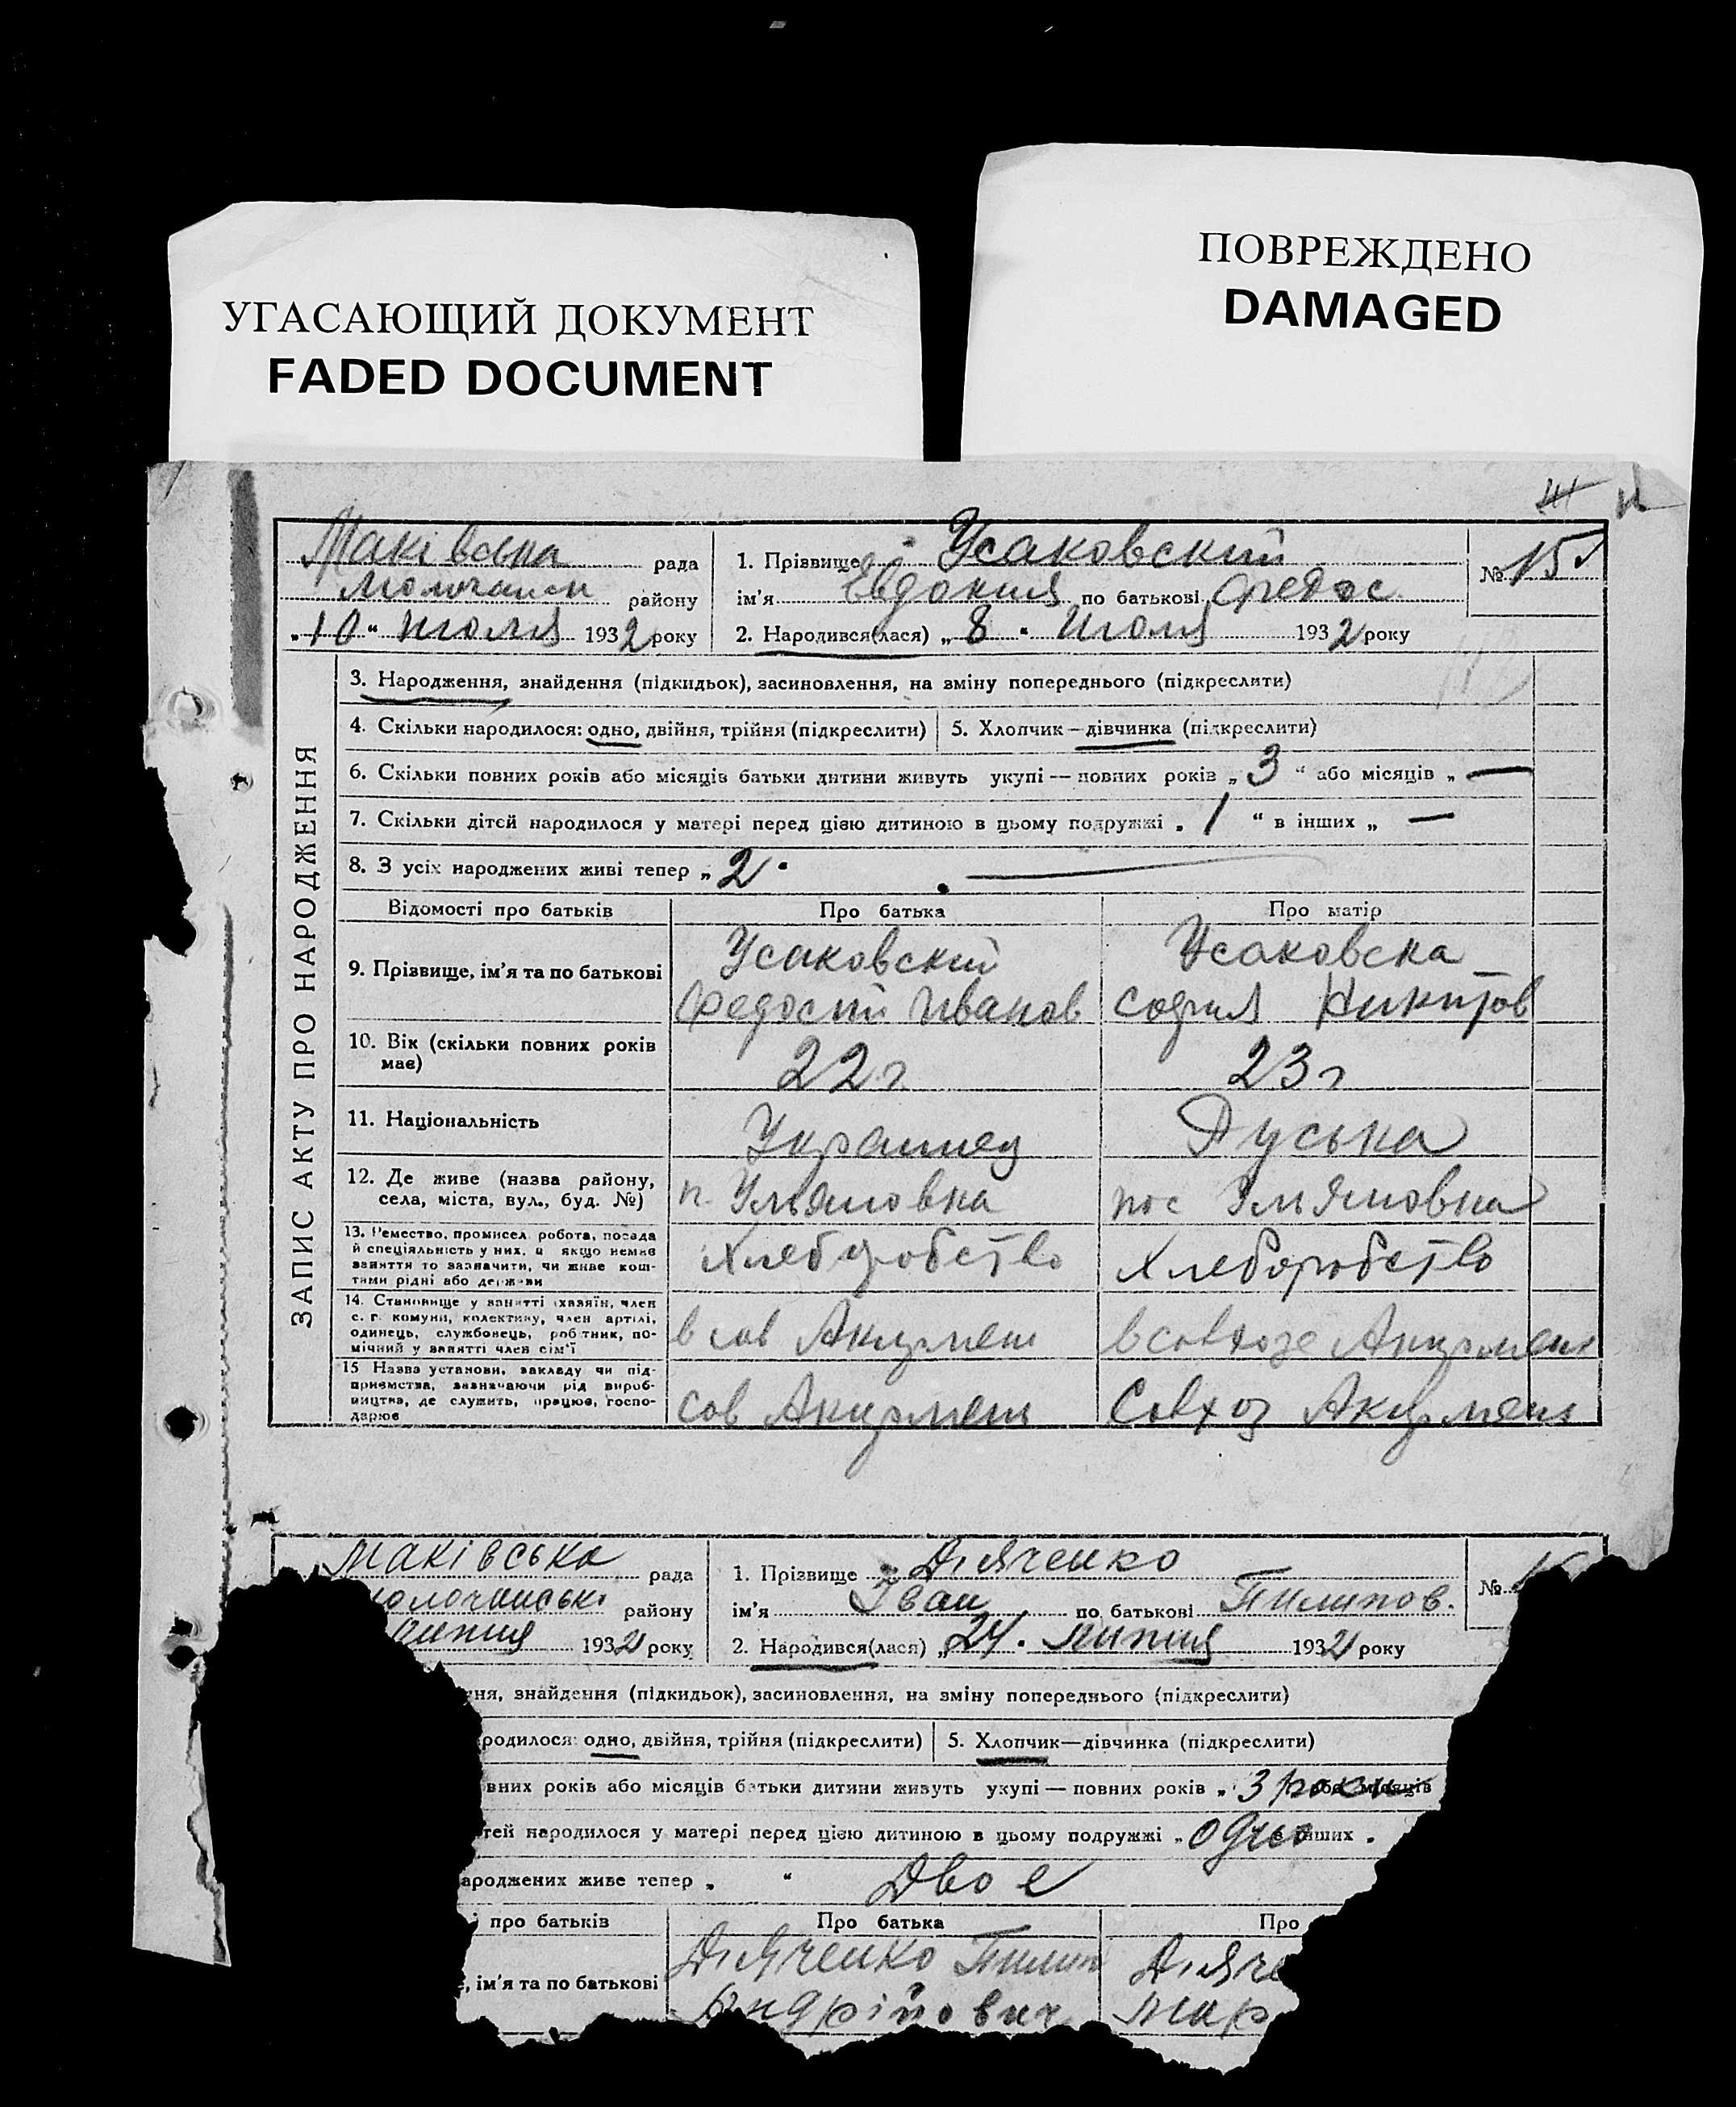 УГАСАЮЩИЙ ДОКУМЕНТ
FADED DOCUMENT
ПОВРЕЖДЕНО
DAMAGED
ЗАПИС АКТУ ПРО НАРОДЖЕННЯ
рада
1. Прізвище Усаковский
№ 15
району
ім'я Евдокия по батькові Федос
„10“ июля 1932 року
2. Народився(лася) „8“ Июля 1932 року
3. Народження, знайдення (підкидьок), засиновлення, на зміну попереднього (підкреслити)
4. Скільки народилося: одно, двійня, трійня (підкреслити)
5. Хлопчик—дівчинка (підкреслити)
6. Скільки повних років або місяців батьки дитини живуть укупі — повних років „3“ або місяців „ —
7. Скільки дітей народилося у матері перед цією дитиною в цьому подружжі „1“ в інших „ —
8. З усіх народжених живі тепер „2“
Відомості про батьків
Про батька
Про матір
9. Прізвище, ім'я та по батькові
Усаковский
Федосий Иванов
Усаковска
София Никитов
10. Вік (скільки повних років має)
22 г
23 г
11. Національність
Украинец
Руська
12. Де живе (назва району,
села, міста, вул., буд. №)
п. Ульяновка
пос Ульяновка
13. Ремество, промисел, робота, посада
й спеціяльність у них, а якщо немає
заняття то зазначити, чи живе кош-
тами рідні або держави
Хлеборобство
Хлеборобство
14. Становище у занятті (хазяїн, член
с. г. комуни, колективу, член артілі,
одинець, службовець, робітник, по-
мічний у занятті член сім'ї
в сов Акермен
в совхозе Акермен
15 Назва установи, закладу чи під-
приємства, зазначаючи рід вироб-
ництва, де служить, працює, госпо-
дарює
Сов Акермен
Совхоз Акермен
Маківська рада
1. Прізвище Дьяченко
№
району
ім'я Іван по батькові Пилипов.
липня 1932 року
2. Народився(лася) „24. липня 1932 року
ння, знайдення (підкидьок), засиновлення, на зміну попереднього (підкреслити)
родилося: одно, двійня, трійня (підкреслити)
5. Хлопчик—дівчинка (підкреслити)
вних років або місяців батьки дитини живуть укупі — повних років „3 роки або місяців
тей народилося у матері перед цією дитиною в цьому подружжі „одно інших
ароджених живе тепер „ “ Двое
і про батьків
Про батька
Про
, ім'я та по батькові
Дьяченко Пилип
Андрійович
Дьяче
Мар